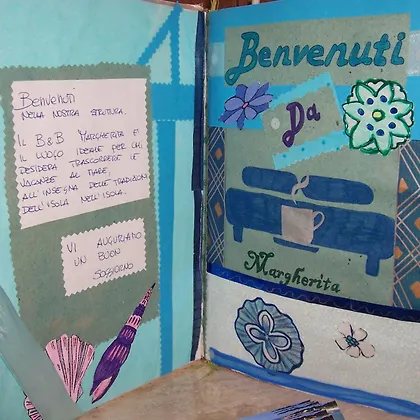 Benvenuti
NELLA NOSTRA STRUTTURA.
IL B&B MARGHERITA È
IL LUOGO IDEALE PER CHI
DESIDERA TRASCORRERE LE
VACANZE AL MARE,
ALL'INSEGNA DELLE TRADIZIONI
DELL'ISOLA NELL'ISOLA.
VI AUGURIAMO
UN BUON
SOGGIORNO
Benvenuti
Da
Margherita